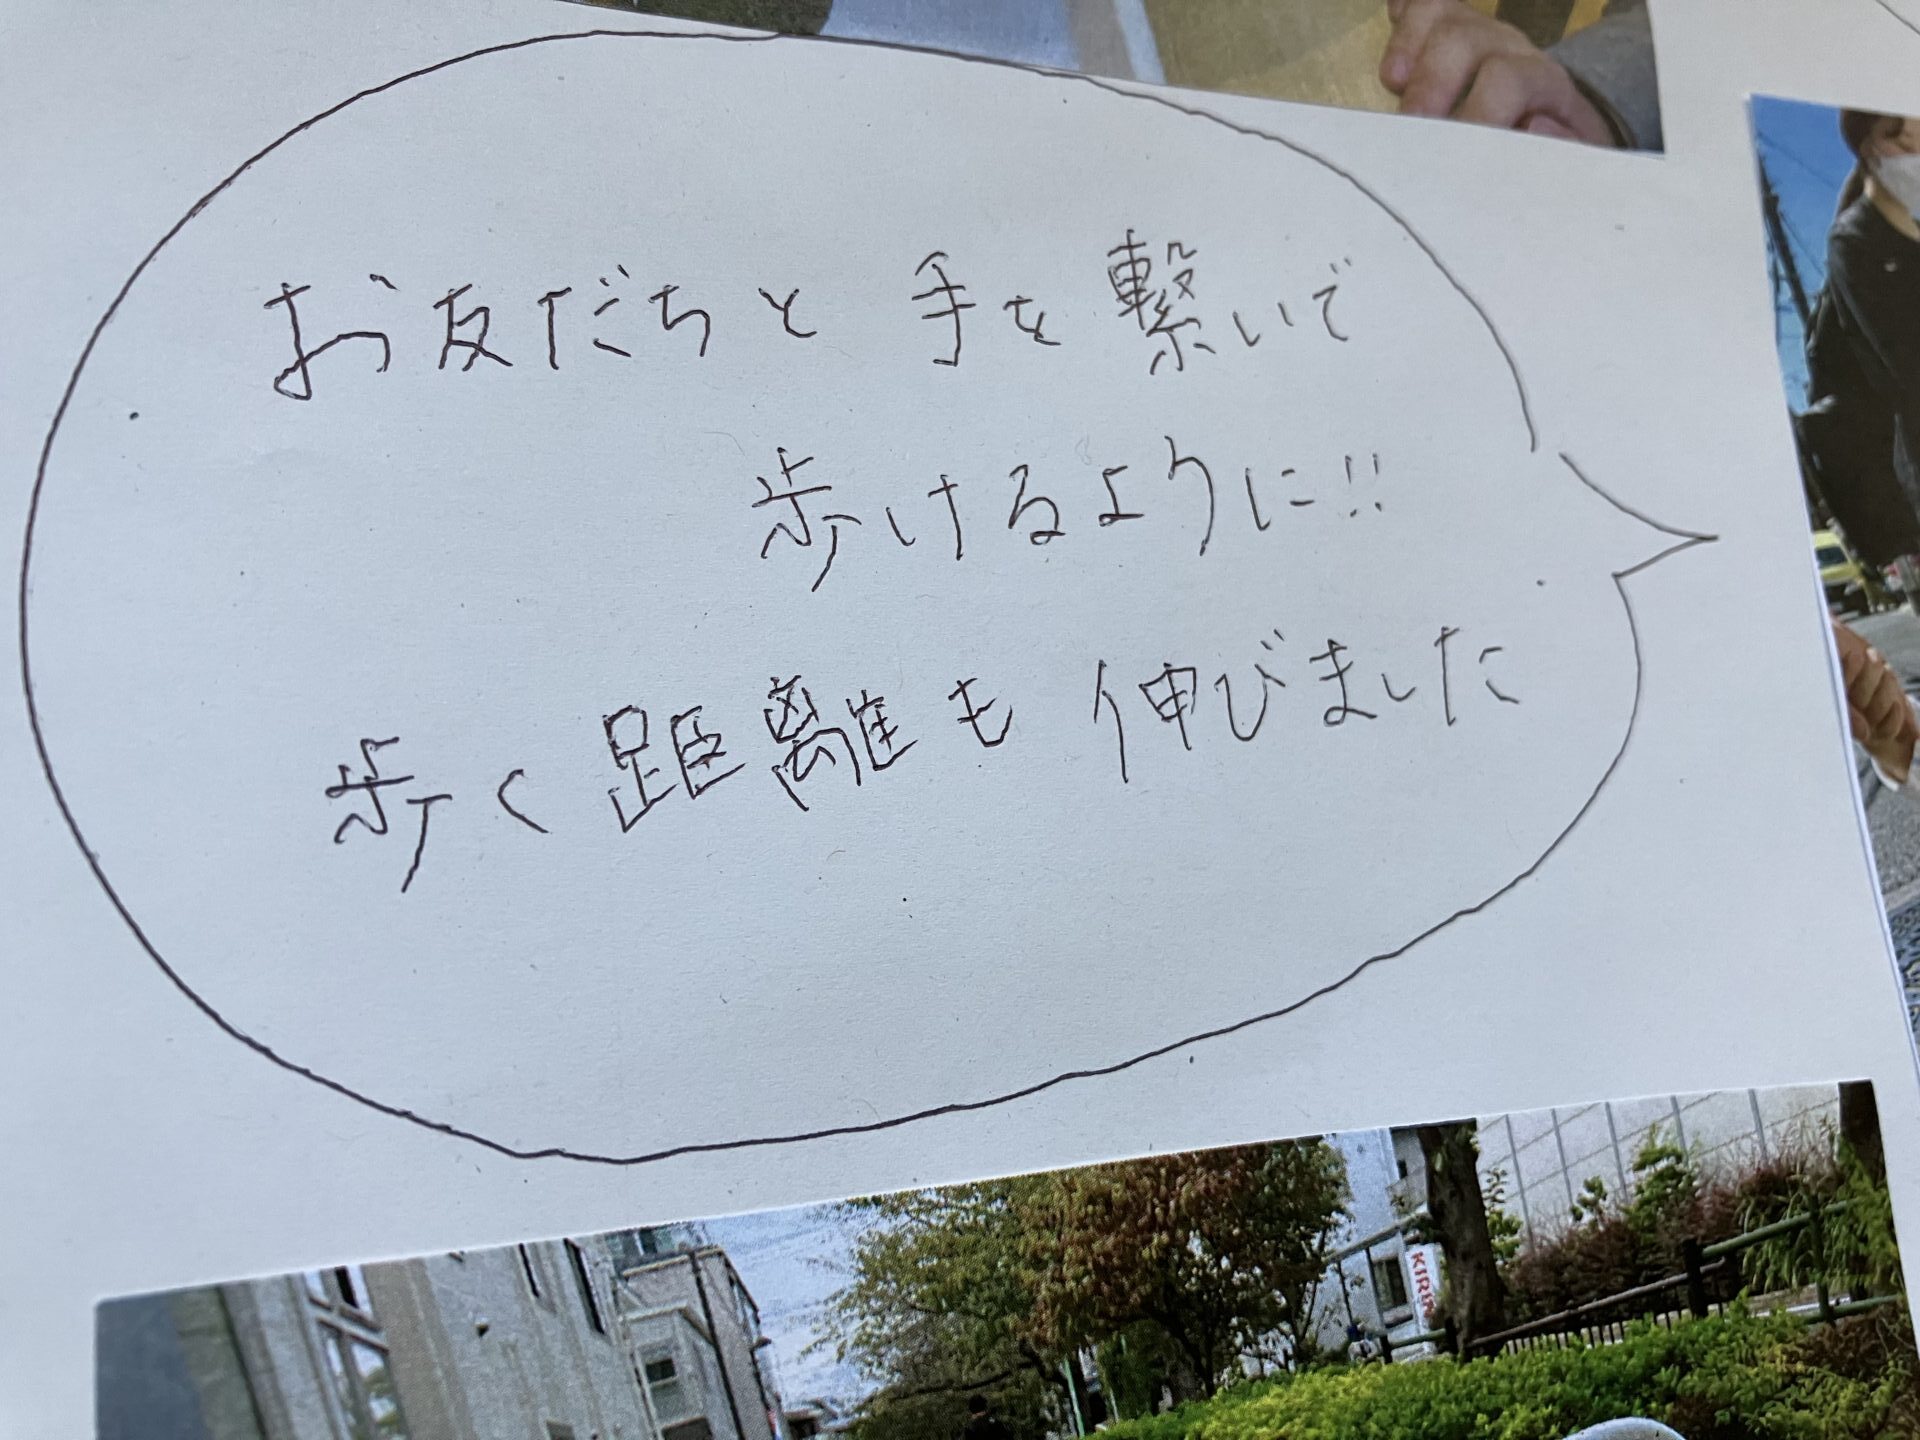 お友だちと 手を繋いで
歩けるように!!
歩く距離も伸びました
KIRIN